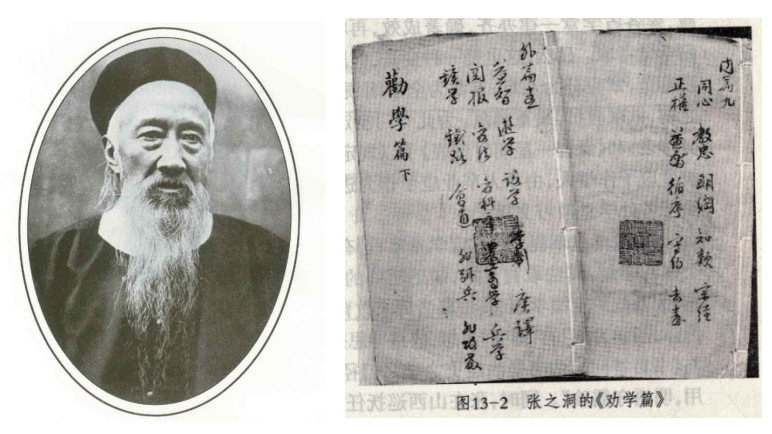 内篇九
同心 教忠 明綱 知類 宗經
正權 循序 守約 去毒
外篇
益智 遊學 設學 學制 廣譯
閱報 變法 變科舉 農工商學 兵學
鑛學 鐵路 會通 非弭兵 非攻教
勸學篇下
图13-2 张之洞的《劝学篇》